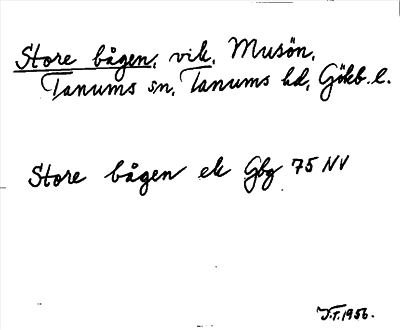 Store bågen, vik, Musön,
Tanums sn, Tanums hd, Gökb. l.
Store bågen ek Gbg 75 NV
J.T. 1956.